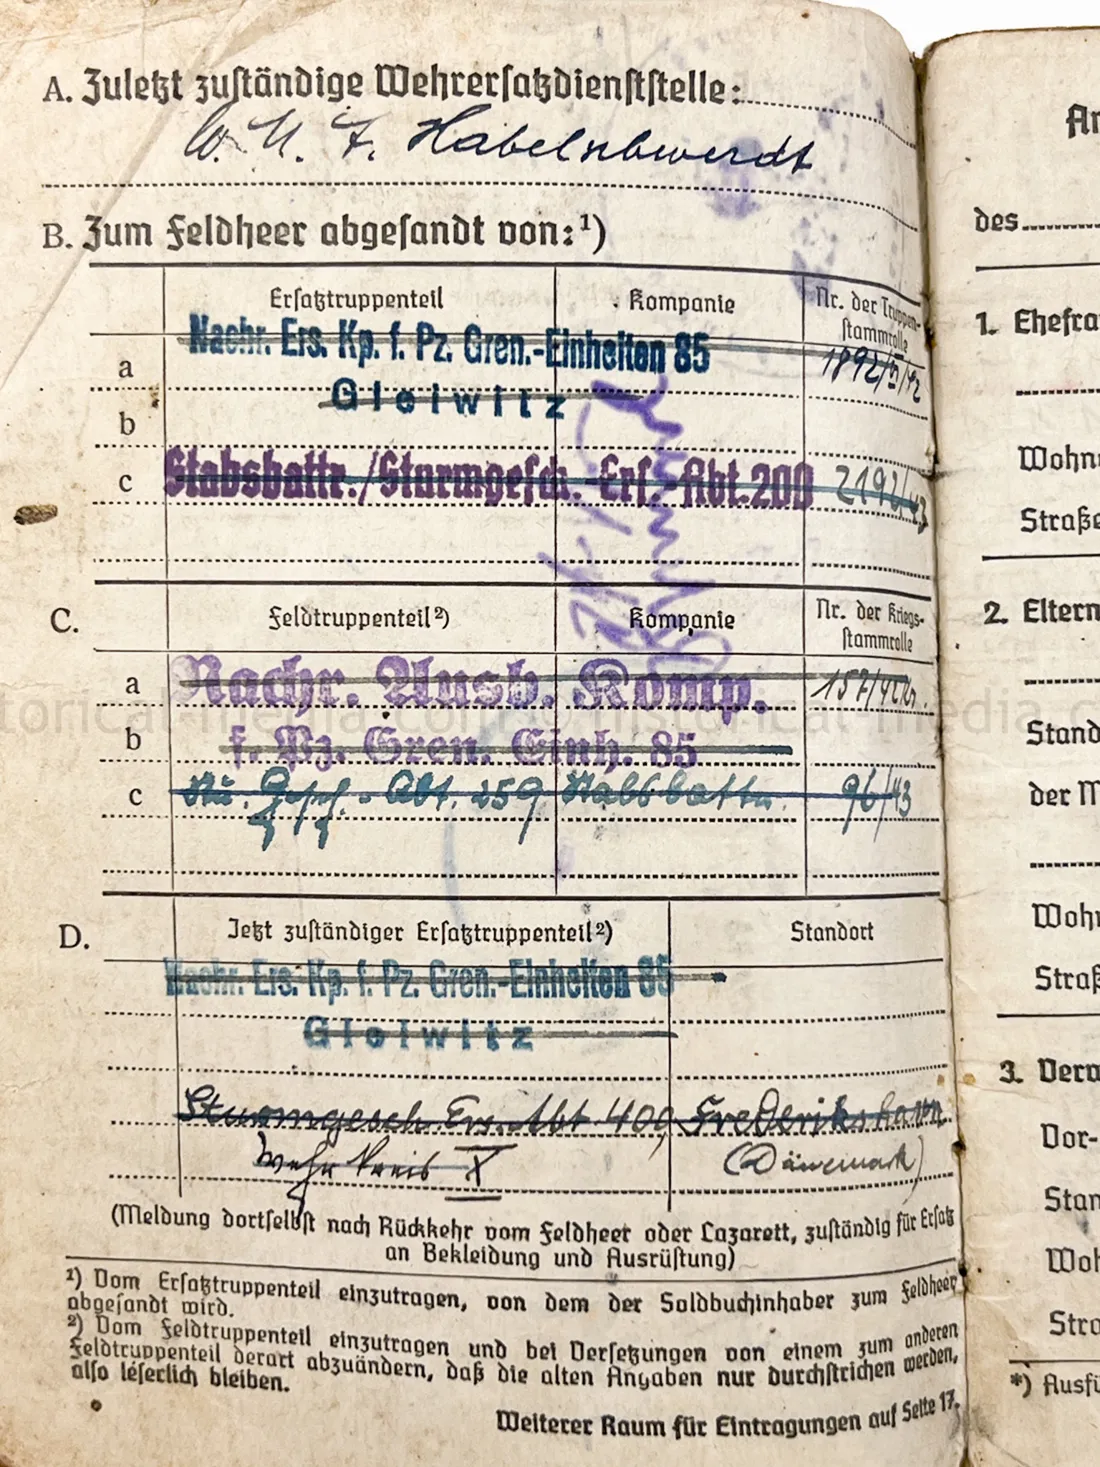 A. Zuletzt zuständige Wehrersatzdienststelle:
W. M. A. Habelschwerdt
B. Zum Feldheer abgesandt von:¹)
Ersatztruppenteil Kompanie Nr. der Truppen-
stammrolle
a Nachr. Ers. Kp. f. Pz. Gren.-Einheiten 85 1892/III/42
Gleiwitz
b
c Stabsbattr./Sturmgesch.-Ers.-Abt. 200 2192/43
C. Feldtruppenteil²) Kompanie Nr. der Kriegs-
stammrolle
a Nachr. Ausb. Komp. 157/42
b f. Pz. Gren. Einh. 85
c Stu. Gesch.-Abt. 259 Stabsbattr. 96/43
D. Jetzt zuständiger Ersatztruppenteil²) Standort
Nachr. Ers. Kp. f. Pz. Gren.-Einheiten 85
Gleiwitz
Sturmgesch. Ers. Abt. 400 Frederikshavn
Wehrkreis X (Dänemark)
(Meldung dortselbst nach Rückkehr vom Feldheer oder Lazarett, zuständig für Ersatz
an Bekleidung und Ausrüstung)
¹) Vom Ersatztruppenteil einzutragen, von dem der Soldbuchinhaber zum Feldheer
abgesandt wird.
²) Vom Feldtruppenteil einzutragen und bei Versetzungen von einem zum anderen
Feldtruppenteil derart abzuändern, daß die alten Angaben nur durchstrichen werden,
also leserlich bleiben.
Weiterer Raum für Eintragungen auf Seite 17.
des
1. Ehefra
Wohn
Straße
2. Eltern
Stand
der M
Wohn
Straß
3. Verw
Vor-
Stan
Woh
Stra
*) Ausf